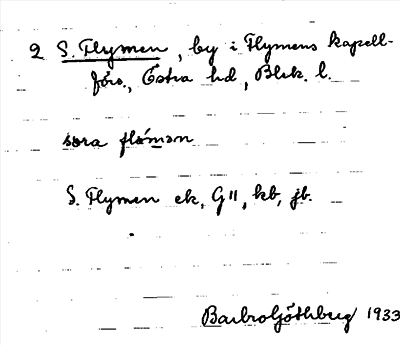 2 S. Flymen, by i Flymens kapell-
förs., Östra hd, Blek. l.
sora flöman
S. Flymen ek, G11, kb, jb.
Barbro Göthberg 1933